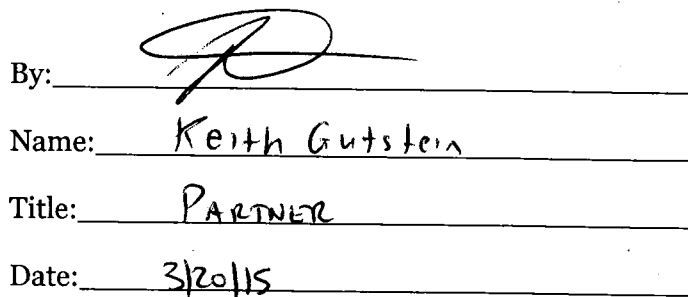 By:
Name: Keith Gutstein
Title: PARTNER
Date: 3/20/15